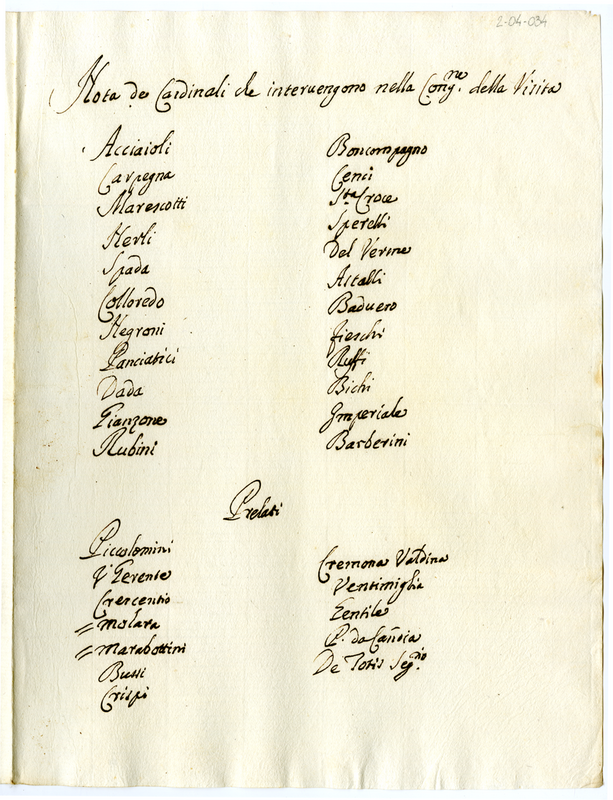 2-04-034
Nota de Cardinali che interuengono nella Cong.ne della Visita
Acciaioli
Carpegna
Marescotti
Nerli
Spada
Colloredo
Negroni
Panciatici
Dada
Gianzone
Rubini
Boncompagno
Cenci
S.ta Croce
Sperelli
Del Verme
Astalli
Baduero
Fieschi
Ruffi
Bichi
Imperiale
Barberini
Prelati
Piccolomini
V Gerente
Crescentio
= Molara
= Marabottini
Bussi
Crispi
Cremona Valdina
Ventimiglia
Gentile
P. da Cañdia
De Totis Seg.rio